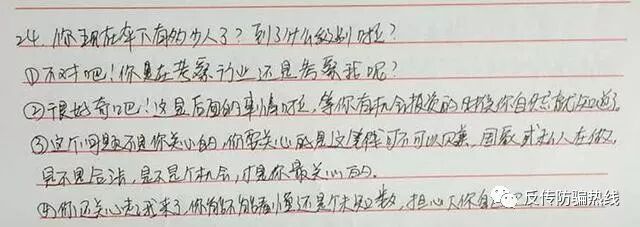 24. 你现在伞下有多少人了？到了什么级别啦？
①不对吧！你是在考察行业还是考察我呢？
②很好奇吧！这是后面的事情啦，等你有机会接触的时候你自然就知道了
③这个问题不是你关心的，你要关心的是这笔钱可不可以赚，国家或私人在做，
是不是合法，是不是个机会，才是你最关心的。
④你还关心起我来了，你能不能看懂还是个未知数，担心下你自
反传防骗热线